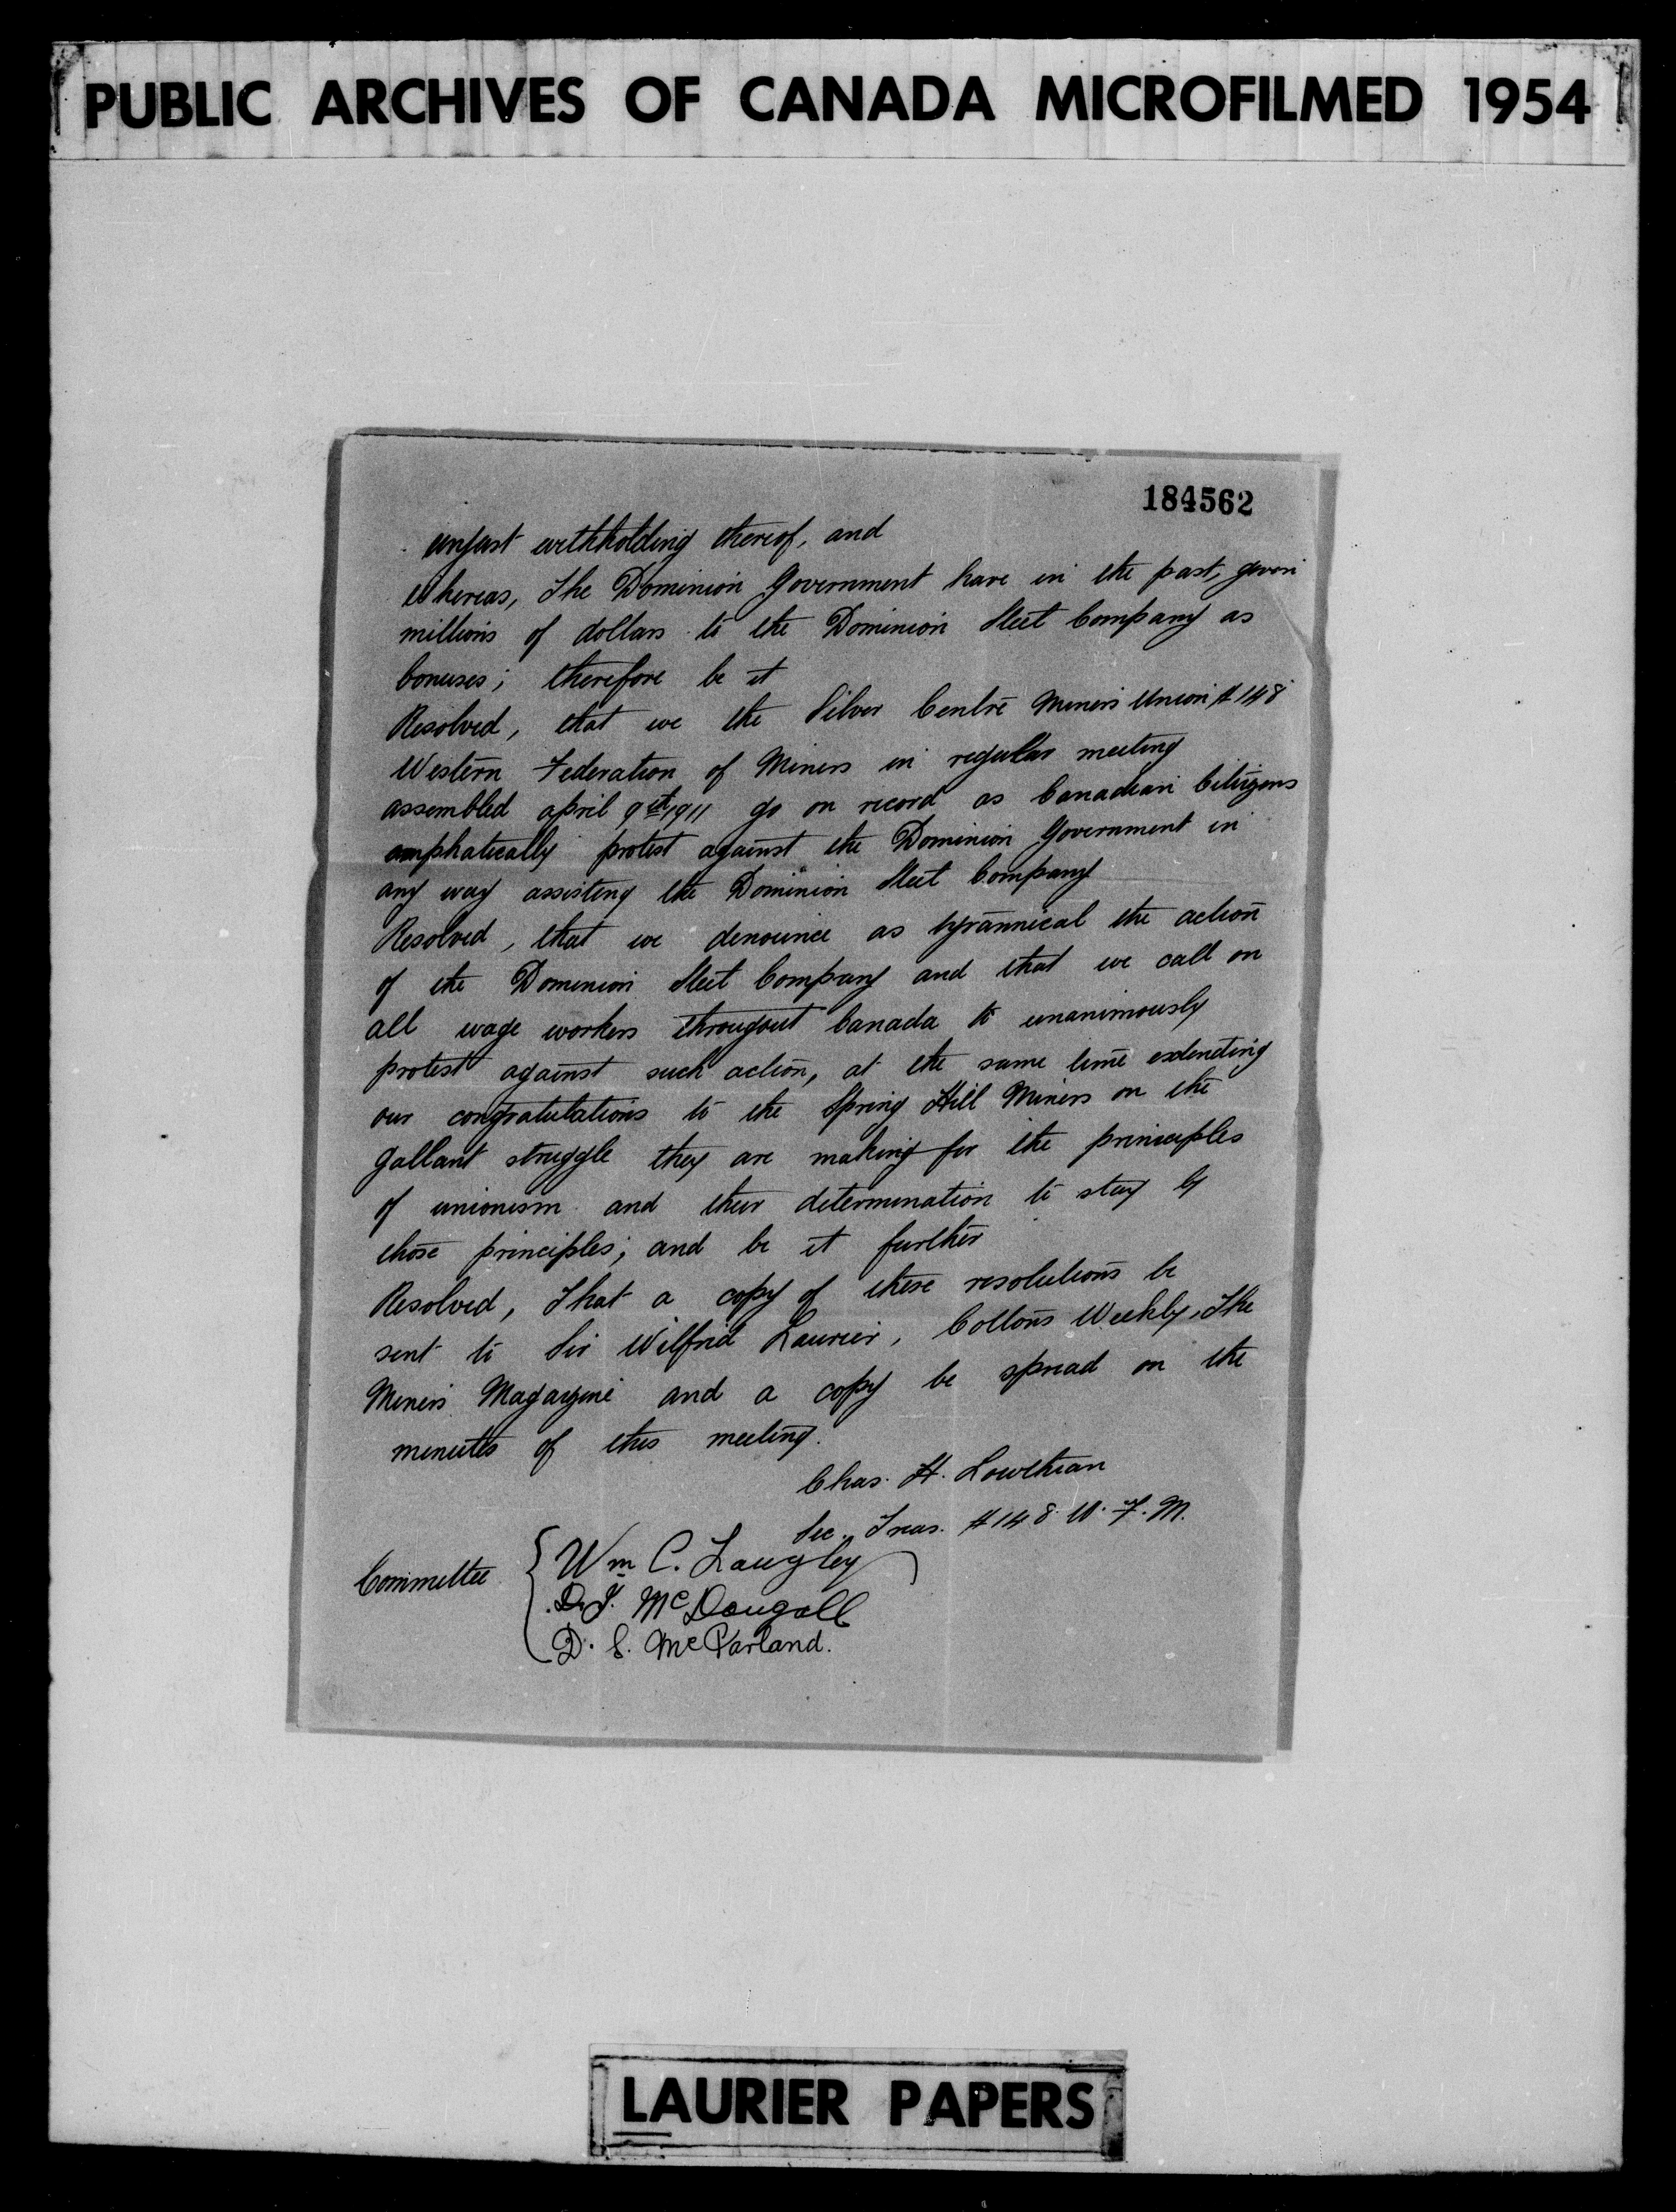 PUBLIC ARCHIVES OF CANADA MICROFILMED 1954
184562
unjust withholding thereof, and
Whereas, The Dominion Government have in the past, given
millions of dollars to the Dominion Steel Company as
bonuses; therefore be it
Resolved, that we the Silver Centre Miners Union #148
Western Federation of Miners in regular meeting
assembled april 9th 1911 go on record as Canadian Citizens
emphatically protest against the Dominion Government in
any way assisting the Dominion Steel Company
Resolved, that we denounce as tyrannical the action
of the Dominion Steel Company and that we call on
all wage workers througout Canada to unanimously
protest against such action, at the same time extending
our congratulations to the Spring Hill Miners on the
gallant struggle they are making for the principles
of unionism and their determination to stay by
those principles; and be it further
Resolved, That a copy of these resolutions be
sent to Sir Wilfrid Laurier, Cottons Weekly, The
Miners Magazine and a copy be spread on the
minutes of this meeting.
Chas. H. Lowthian
Sec. Treas. #148 W. F. M.
Committee { Wm C. Langley
D. J. McDougall
D. S. McParland.
LAURIER PAPERS